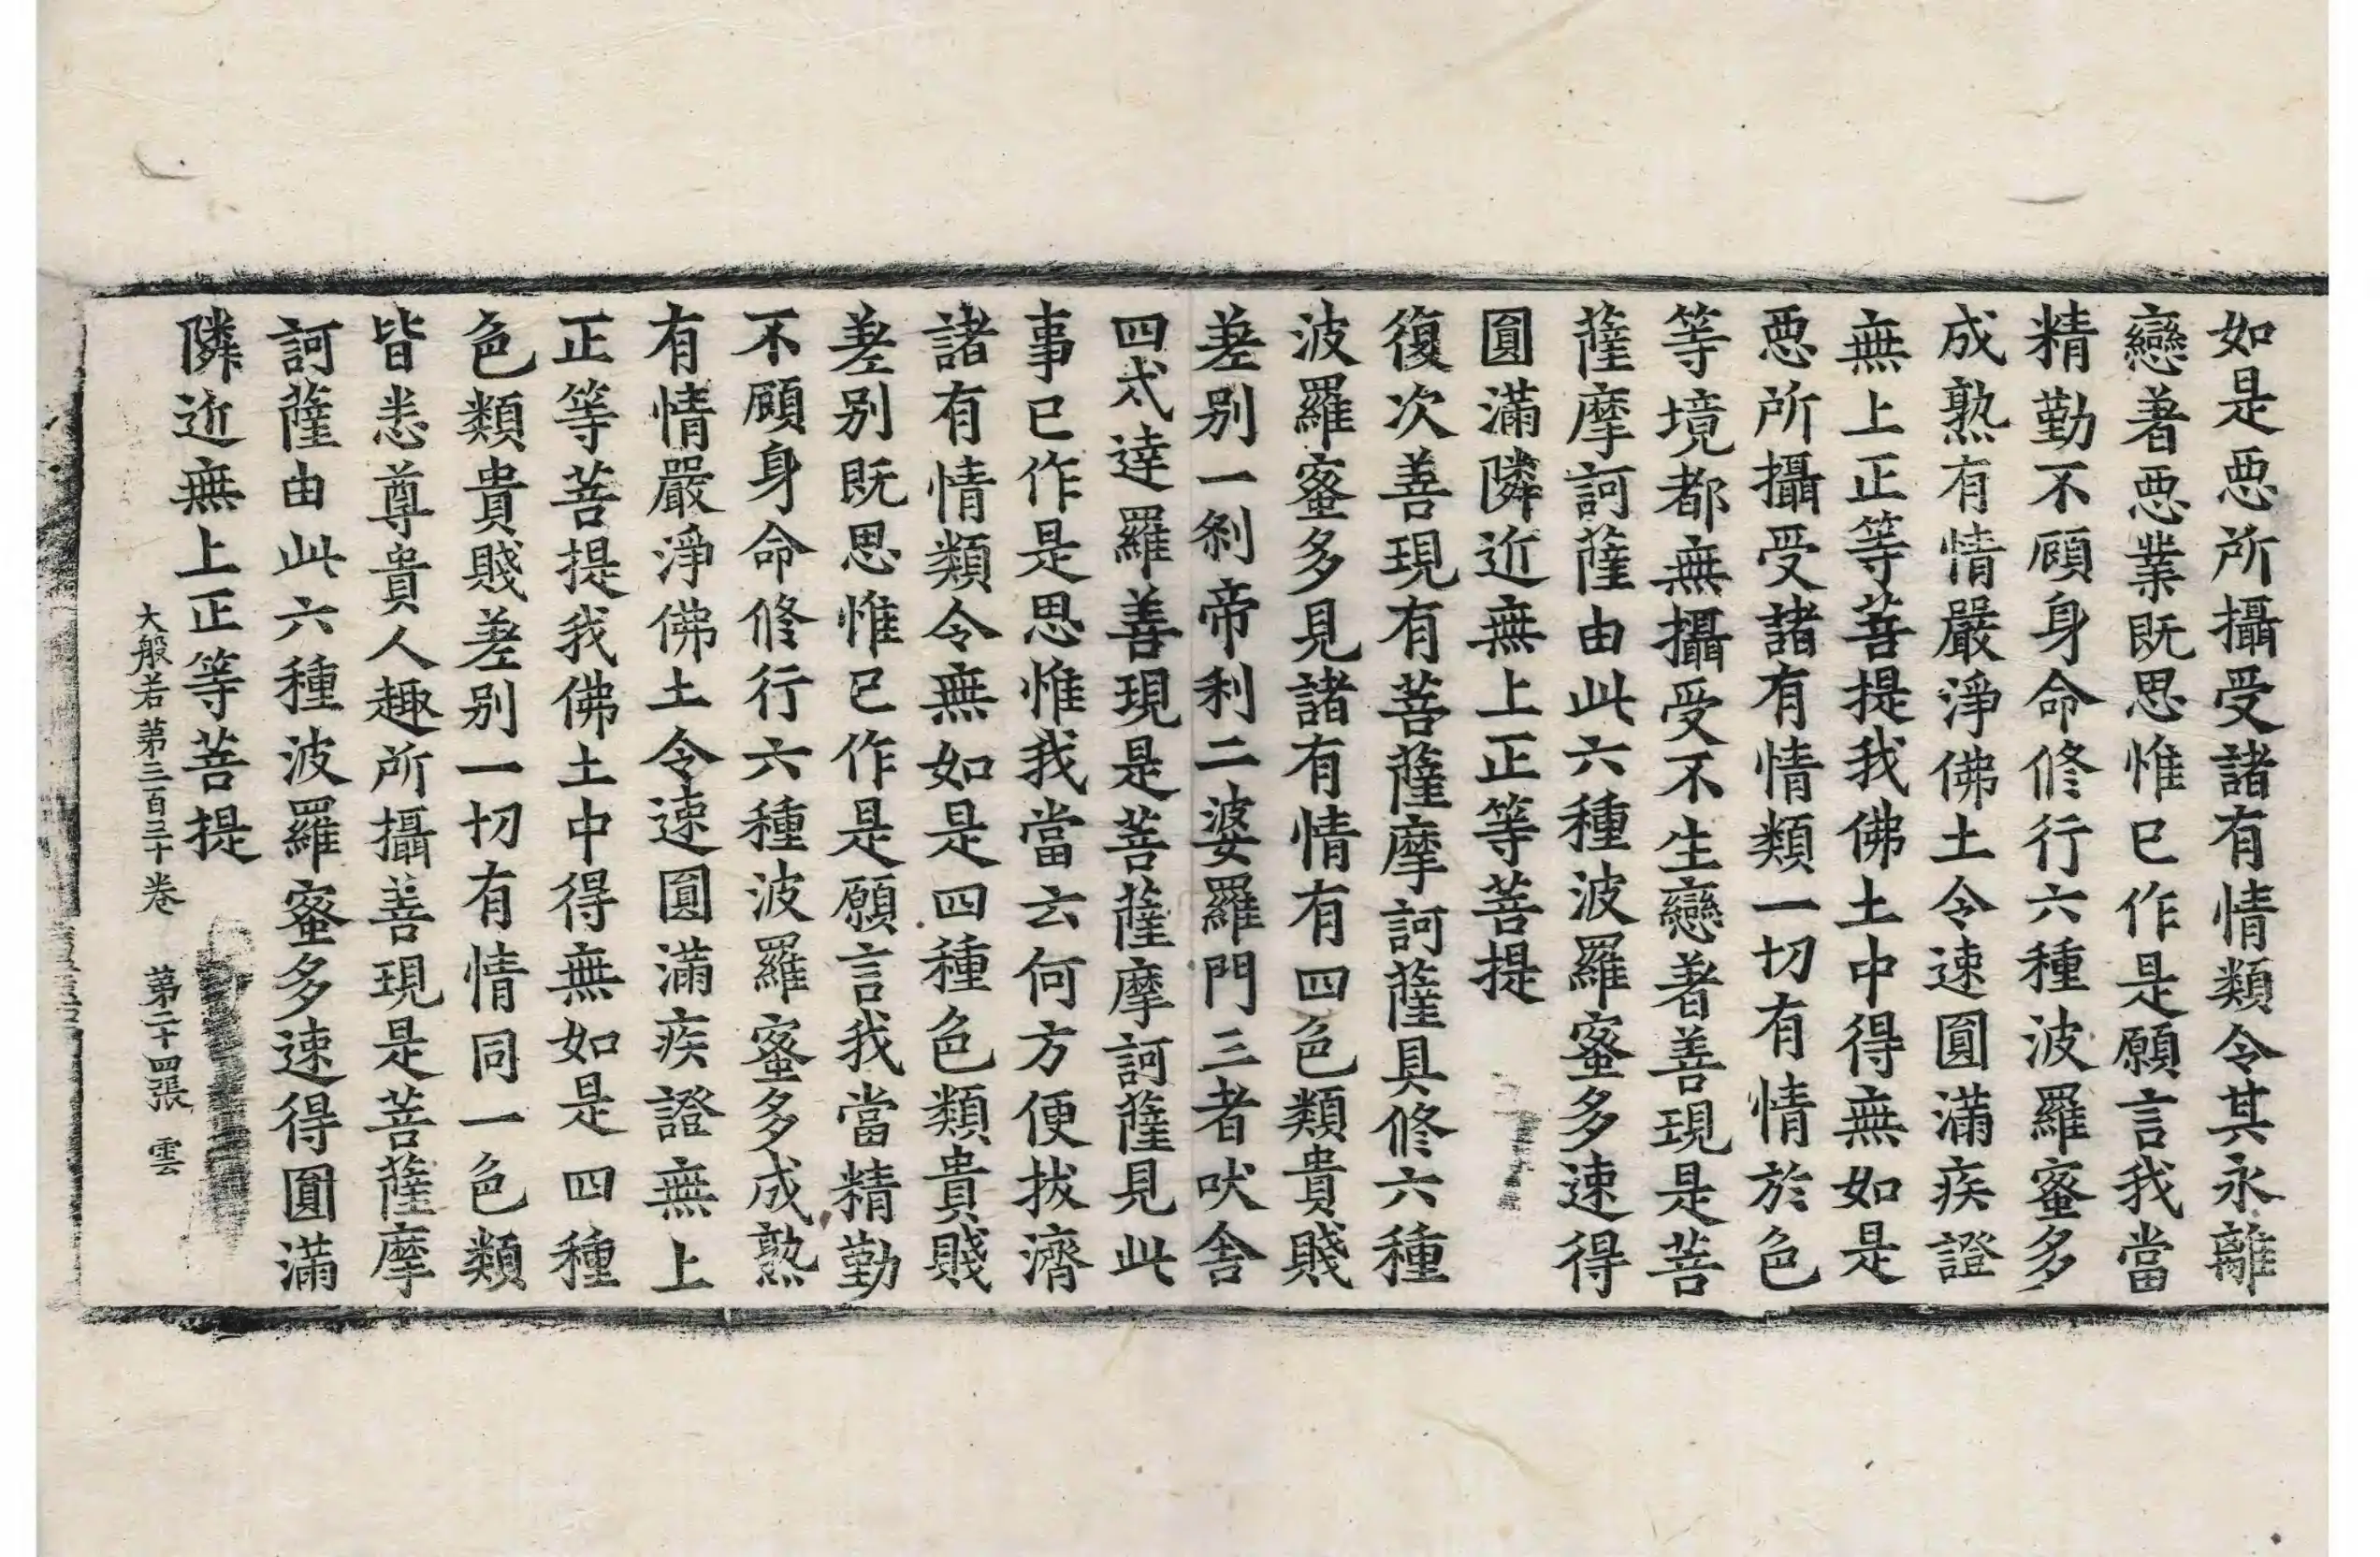 如是惡所攝受諸有情類令其永離
戀著惡業既思惟已作是願言我當
精勤不顧身命修行六種波羅蜜多
成熟有情嚴淨佛土令速圓滿疾證
無上正等菩提我佛土中得無如是
惡所攝受諸有情類一切有情於色
等境都無攝受不生戀著善現是菩
薩摩訶薩由此六種波羅蜜多速得
圓滿隣近無上正等菩提
復次善現有菩薩摩訶薩具修六種
波羅蜜多見諸有情有四色類貴賤
差別一剎帝利二婆羅門三者吠舍
四戍達羅善現是菩薩摩訶薩見此
事已作是思惟我當云何方便拔濟
諸有情類令無如是四種色類貴賤
差別既思惟已作是願言我當精勤
不顧身命修行六種波羅蜜多成熟
有情嚴淨佛土令速圓滿疾證無上
正等菩提我佛土中得無如是四種
色類貴賤差別一切有情同一色類
皆悉尊貴人趣所攝善現是菩薩摩
訶薩由此六種波羅蜜多速得圓滿
隣近無上正等菩提
大般若第三百三十卷 第二十四張 雲